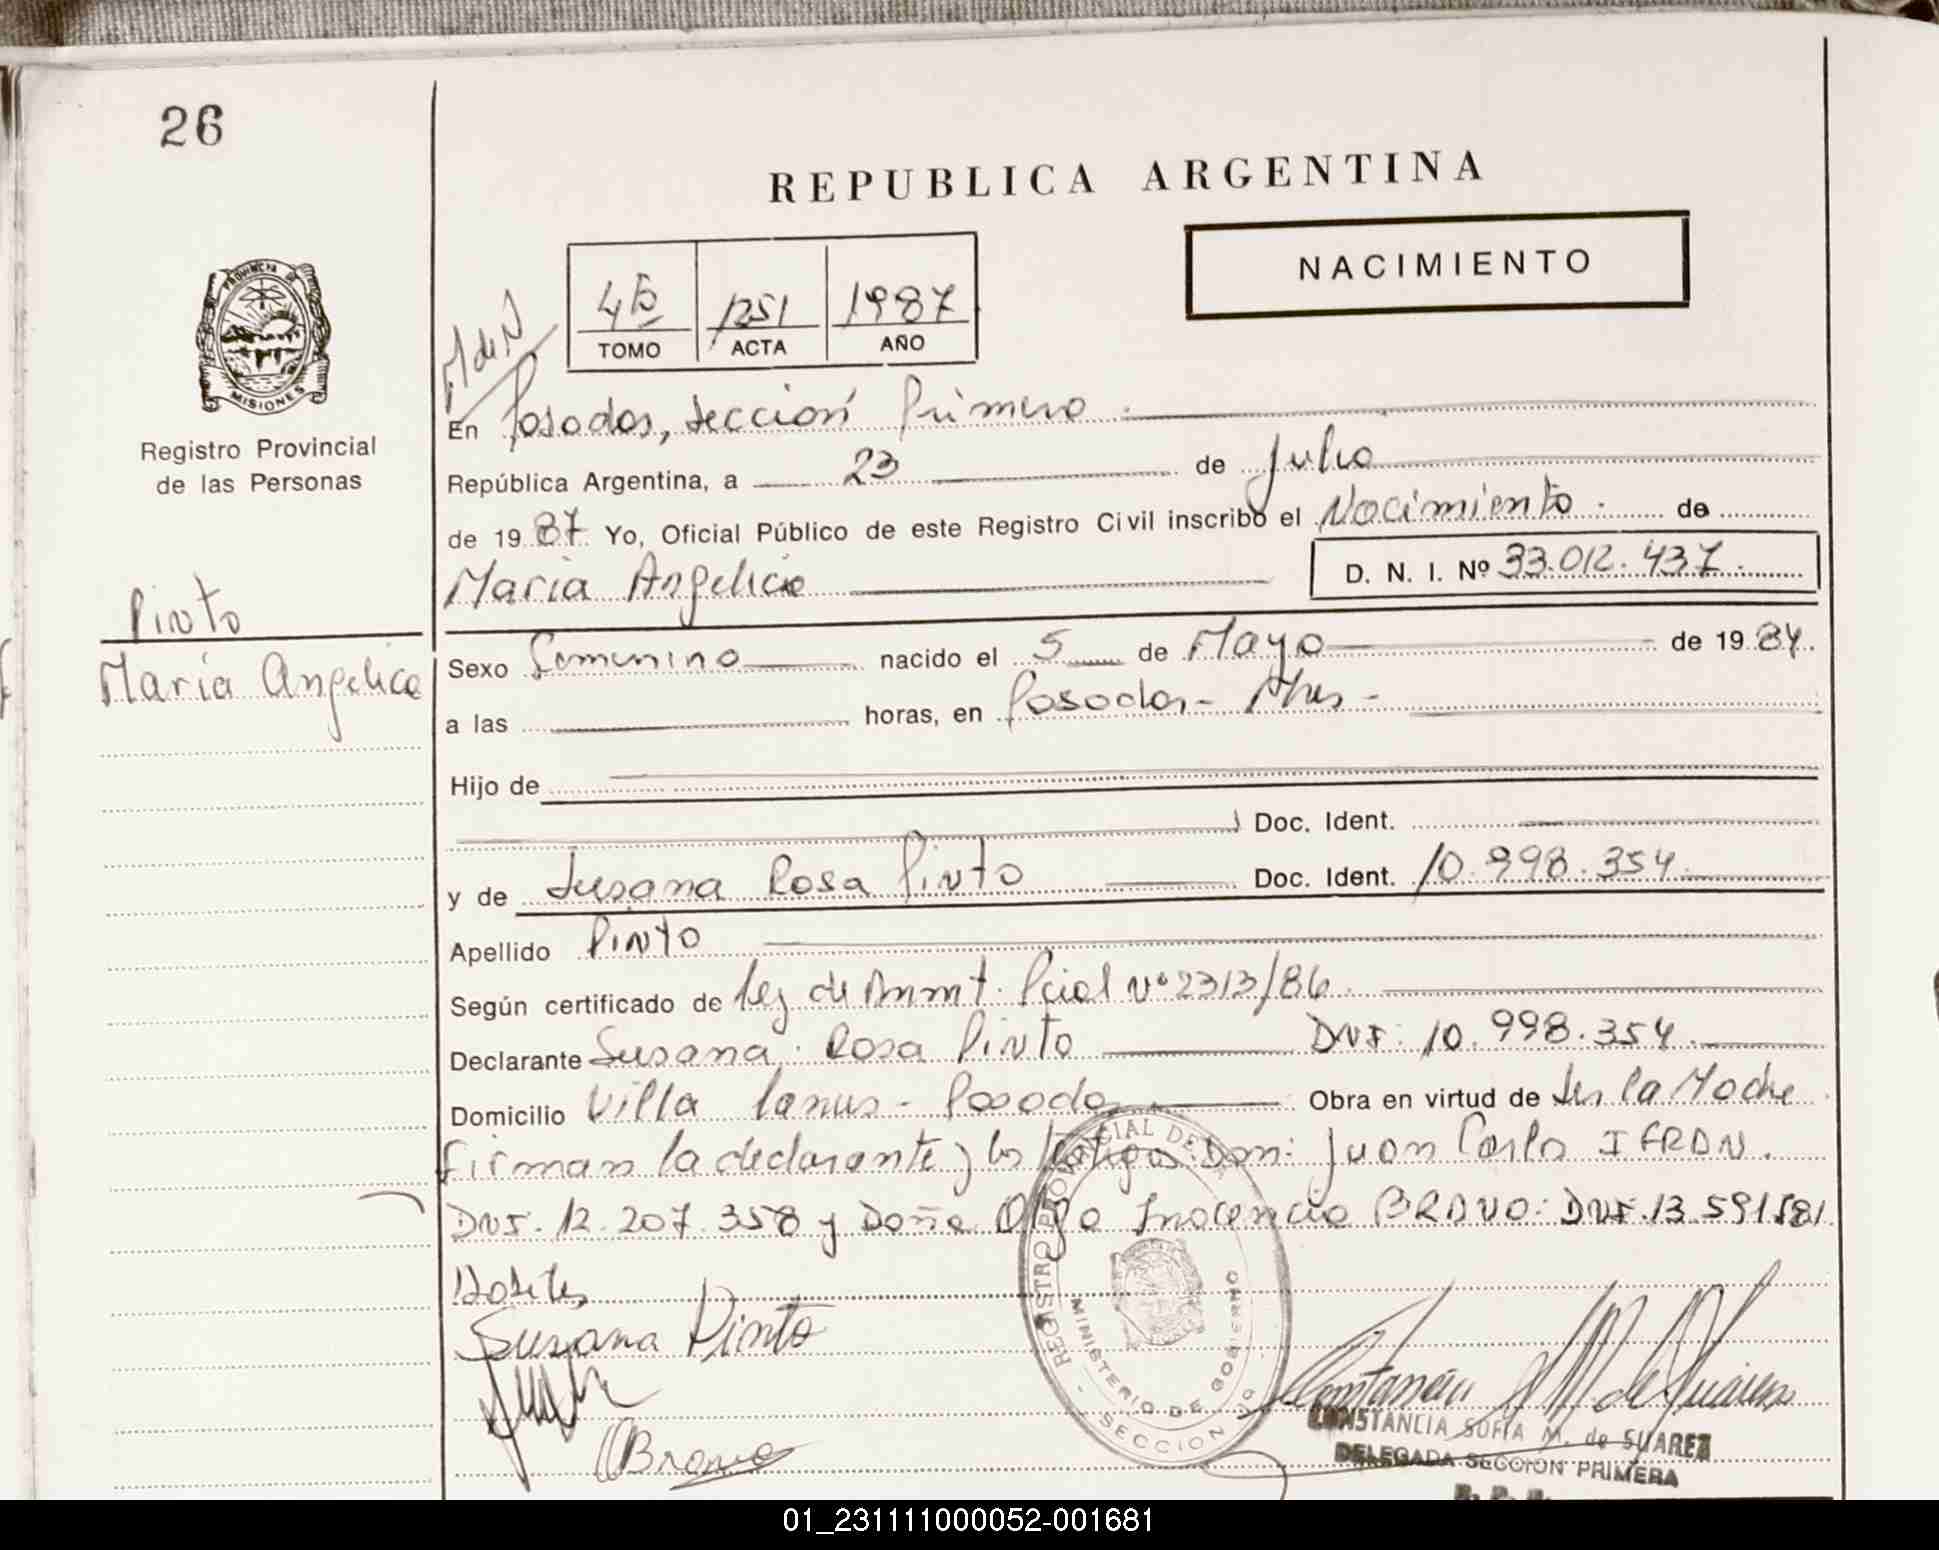 26
REPUBLICA ARGENTINA
NACIMIENTO
PROVINCIA DE
MISIONES
Registro Provincial
de las Personas
TOMO
1251 ACTA
1987 AÑO
En Posadas, Sección Primera
República Argentina, a 23 de Julio
de 1987 Yo, Oficial Público de este Registro Civil inscribo el Nacimiento de
María Angelica D. N. I. Nº 33.012.437
Pinto
María Angelica
Sexo Femenino nacido el 5 de Mayo de 1984.
a las horas, en Posadas - Mnes -
Hijo de
Doc. Ident.
y de Susana Rosa Pinto Doc. Ident. 10.998.354
Apellido Pinto
Según certificado de Ley de Amnt. Pcial Nº 2313/86
Declarante Susana Rosa Pinto DNI: 10.998.354
Domicilio Villa Lanus - Posadas Obra en virtud de Ser la Madre
Firman la declarante y los testigos: Don: Juan Carlo
DNI. 12.207.358 y Doña Olga Inocencia BRAVO: DNI. 13.591.581
Hábiles
Susana Pinto
Bravo
REGISTRO PROVINCIAL DE LAS
MINISTERIO DE GOBIERNO
SECCION 1a
Constancia S M. de Suarez
CONSTANCIA SOFIA M. de SUAREZ
DELEGADA SECCION PRIMERA
R. P. P.
01_231111000052-001681